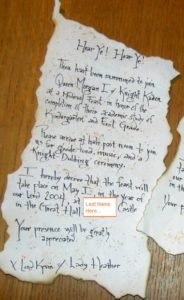 Hear Ye! Hear Ye!
Thou hast been summoned to join
Queen Morgan I & Knight Kaden
at a Medieval Feast in honor of the
completion of their academic study of
Kindergarten and First Grade.
Thous arrive at half past noon to join
us for goode food, music, and a
Knight Dubbing ceremony.
I hereby decree that the feast will
take place on May in the year of
our Lord 2004 at
in the Great Hall Castle
Last Name
Here
Your presence will be greatly
appreciated.
Lord Kevin & Lady Heather